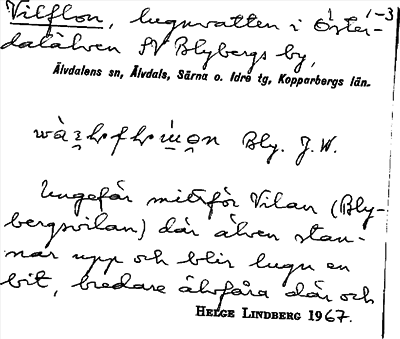 Vilflon, lugnvatten i Öster-
1-3
dalälven SV Blybergs by,
Älvdalens sn, Älvdals, Särna o. Idre tg, Kopparbergs län.
Bly. J.W.
Ungefär mittför Vilan (Bly-
bergsvilan) där älven stan-
nar upp och blir lugn en
bit, bredare älvfåra där och
HELGE LINDBERG 1967.